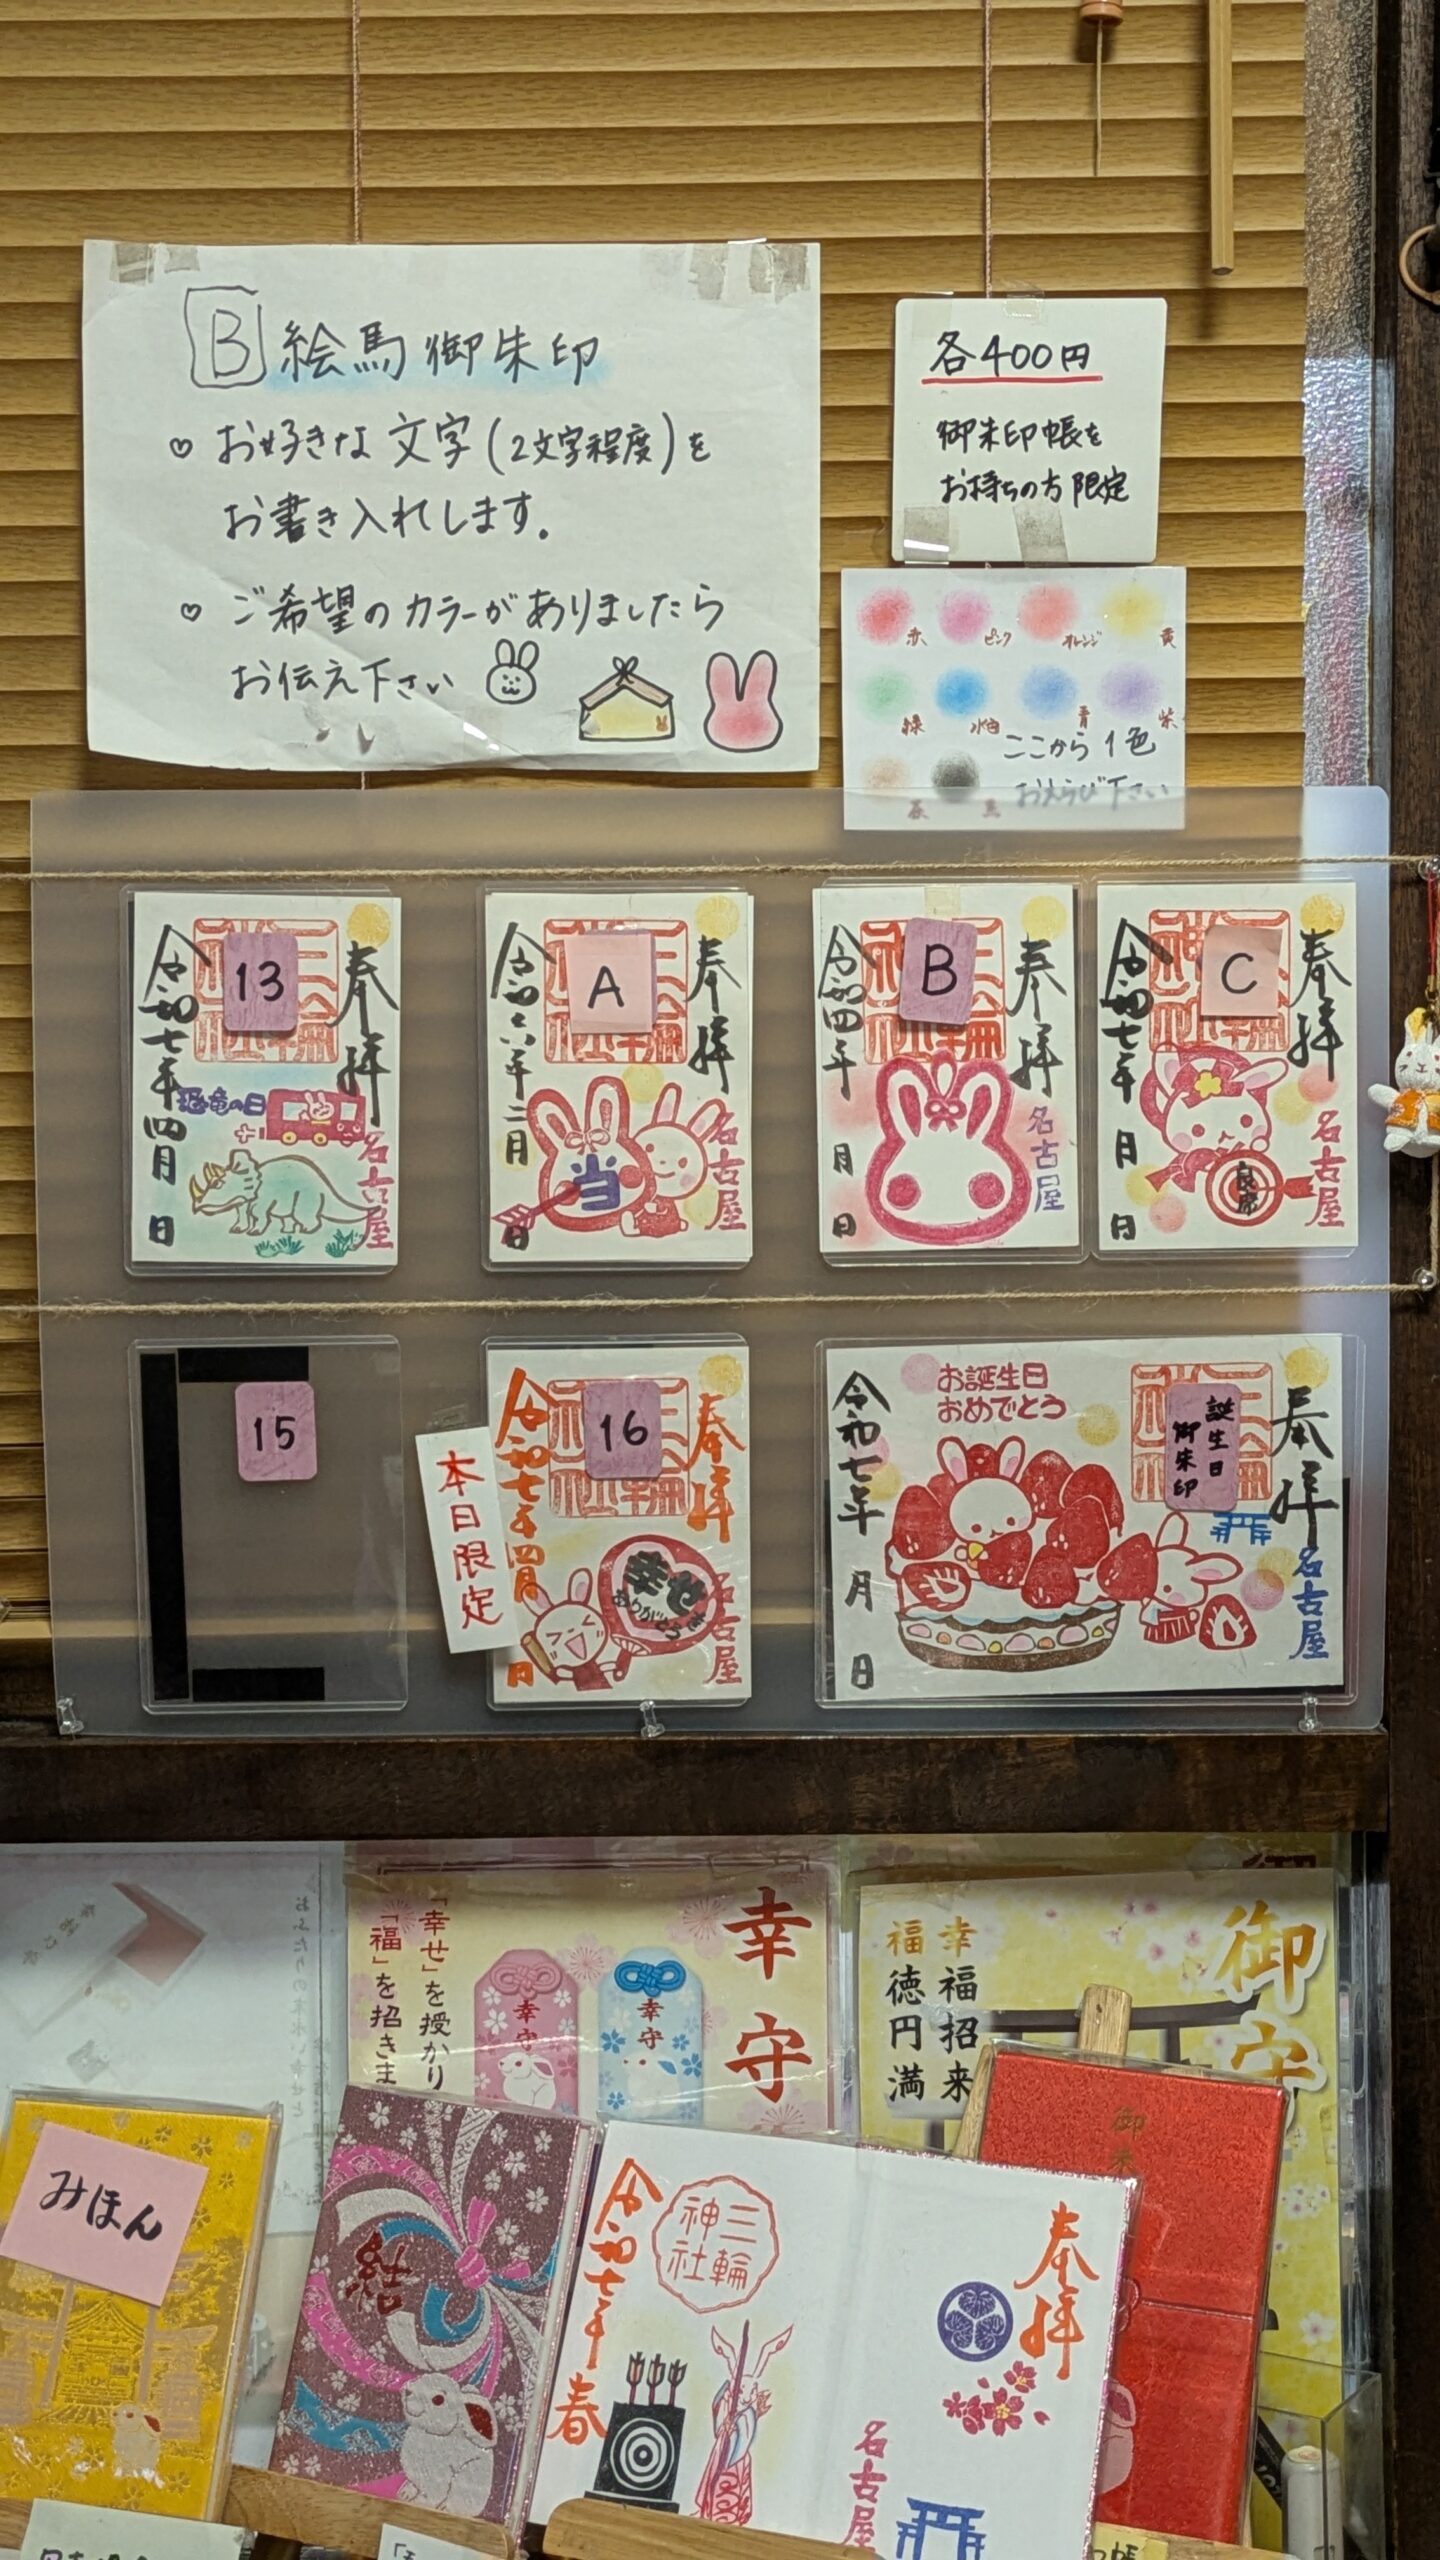 B 絵馬御朱印
♡ お好きな文字(2文字程度)を
お書き入れします。
♡ ご希望のカラーがありましたら
お伝え下さい
各400円
御朱印帳を
お持ちの方限定
赤 ピンク オレンジ 黄
緑 水色 青 紫
ここから1色
おえらび下さい
茶 黒
13
奉拝
令和七年四月 日
恐竜の日
名古屋
A
奉拝
令和六年二月 日
当
名古屋
B
奉拝
令和四年 月 日
名古屋
C
奉拝
令和七年 月 日
良席
名古屋
15
本日限定
16
奉拝
令和七年四月 日
幸せを
ありがとう
名古屋
誕生日
御朱印
お誕生日
おめでとう
奉拝
令和七年 月 日
名古屋
幸守
「幸せ」を授かり
「福」を招きま
幸守
幸守
御守
幸福招来
福徳円満
みほん
結
奉拝
三輪
神社
令和七年春
名古屋
御朱